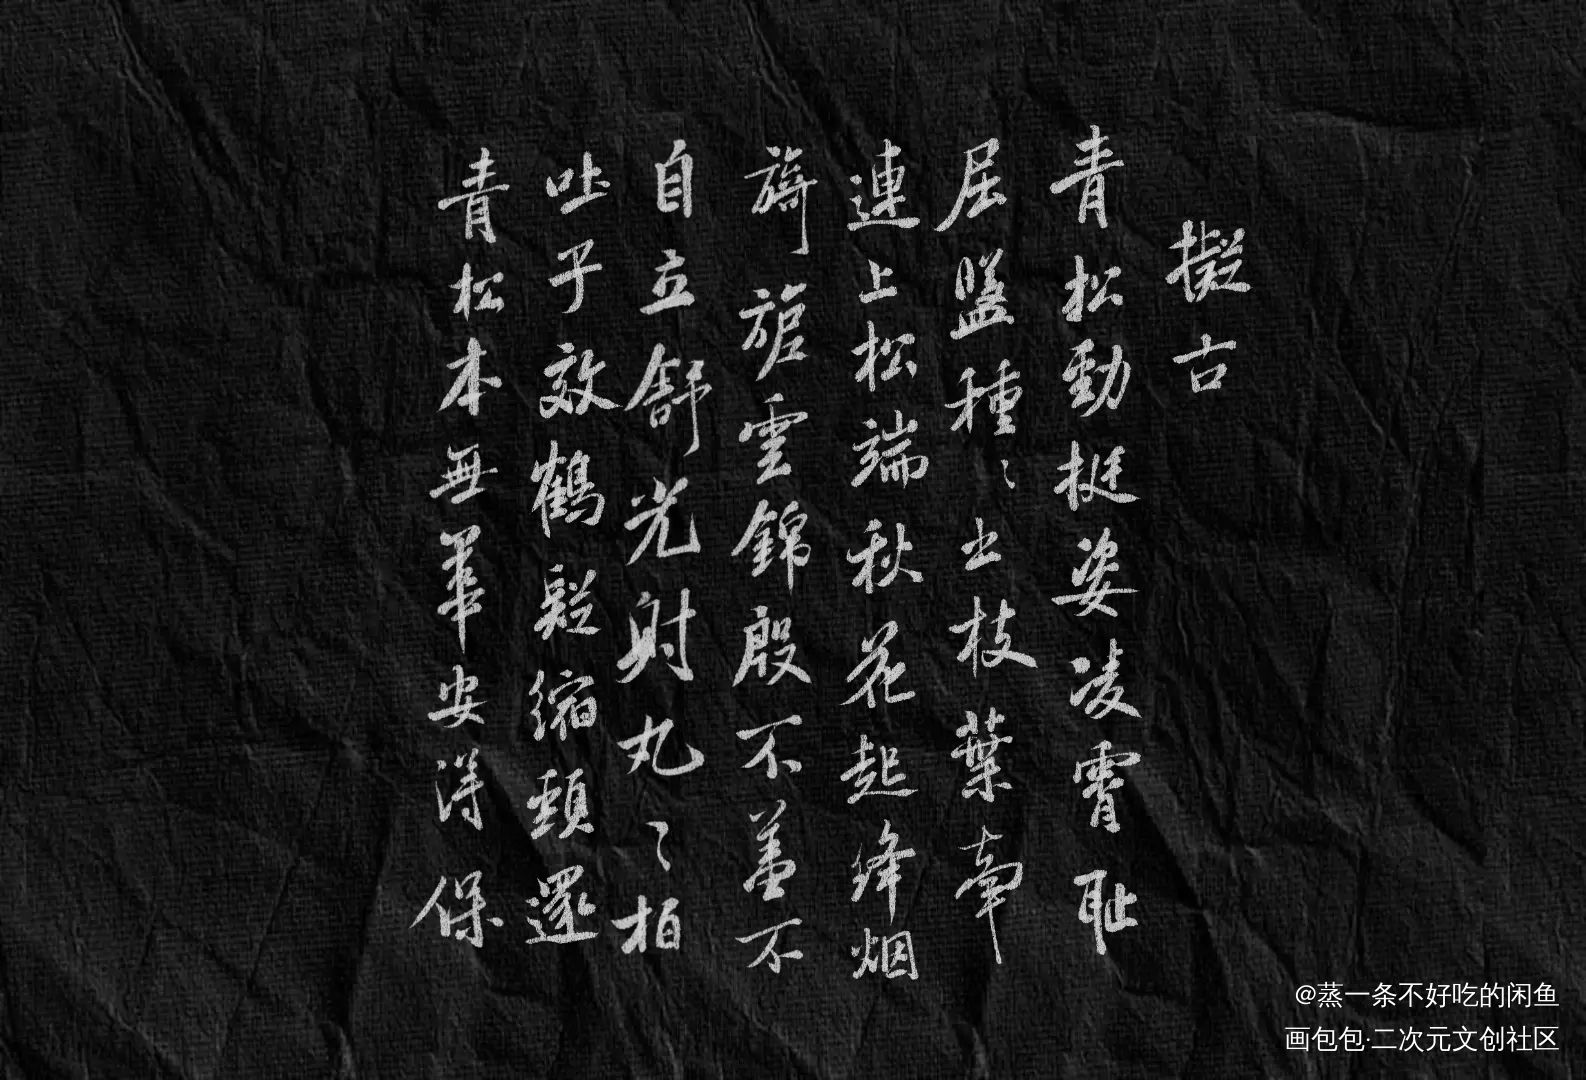 擬古
青松勁挺姿凌霄恥
屈盤種〻出枝葉牽
連上松端秋花起絳烟
旖旎雲錦殷不羞不
自立舒光射丸〻柏
吐子效鶴疑縮頸還
青松本無華安得保
@蒸一条不好吃的闲鱼
画包包·二次元文创社区